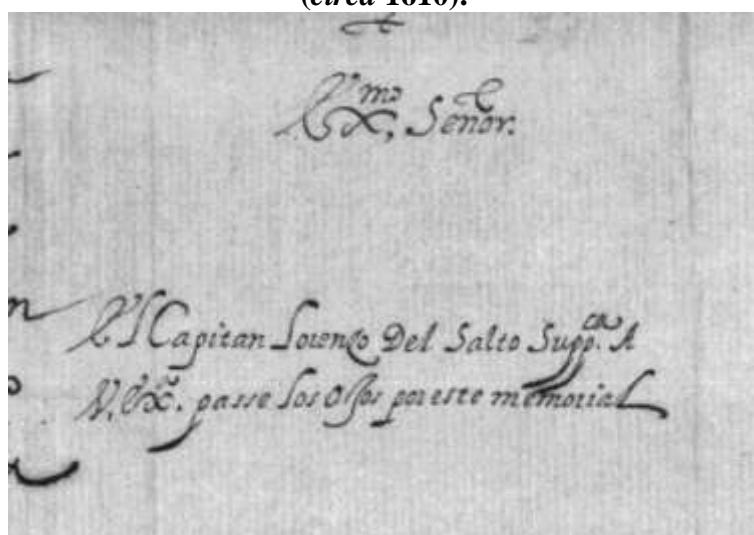 (circa 1610).
Exmo, Señor.
El Capitan Lorenço Del Salto Suppca A
V. Exa. passe los Ojos por este memorial